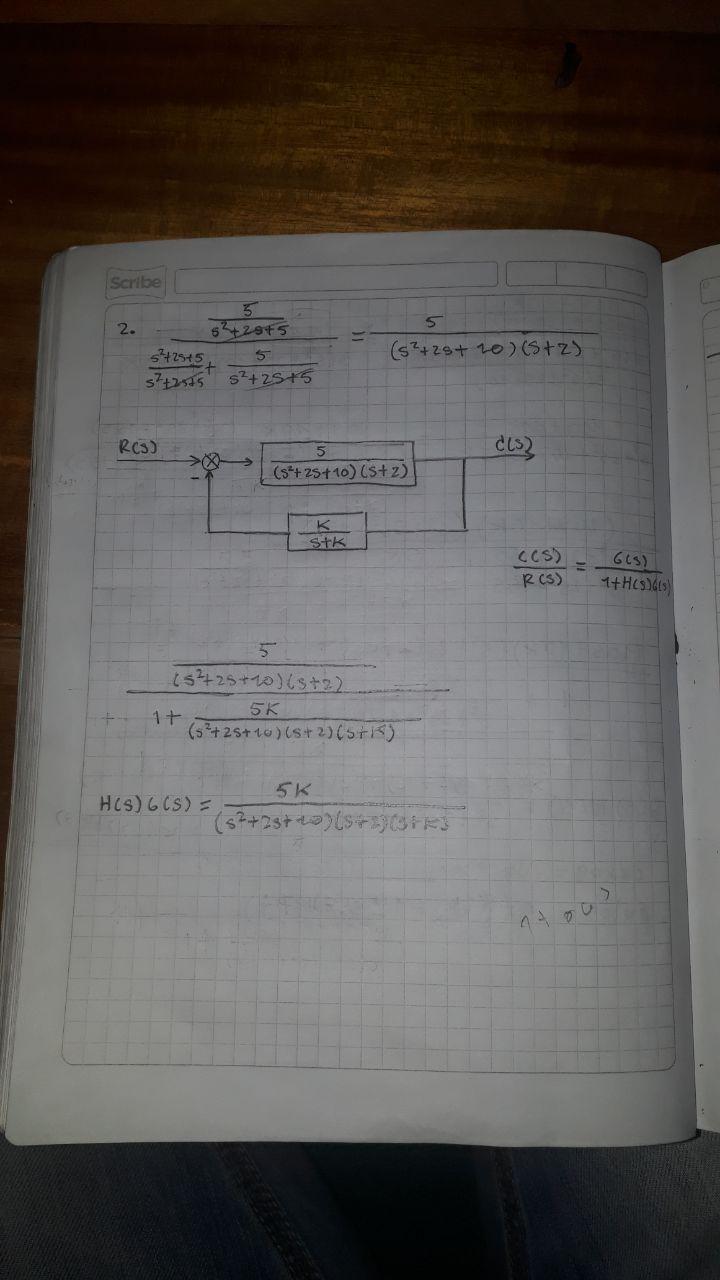 Scribe
2. (5/(s²+2s+5)) / ((s²+2s+5)/(s²+2s+5) + 5/(s²+2s+5)) = 5/((s²+2s+10)(s+2))
R(s) C(s)
5/((s²+2s+10)(s+2))
-
K/(s+K)
C(s)/R(s) = G(s)/(1+H(s)G(s))
(5/((s²+2s+10)(s+2))) / (1+ 5K/((s²+2s+10)(s+2)(s+K)))
H(s)G(s) = 5K/((s²+2s+10)(s+2)(s+K))